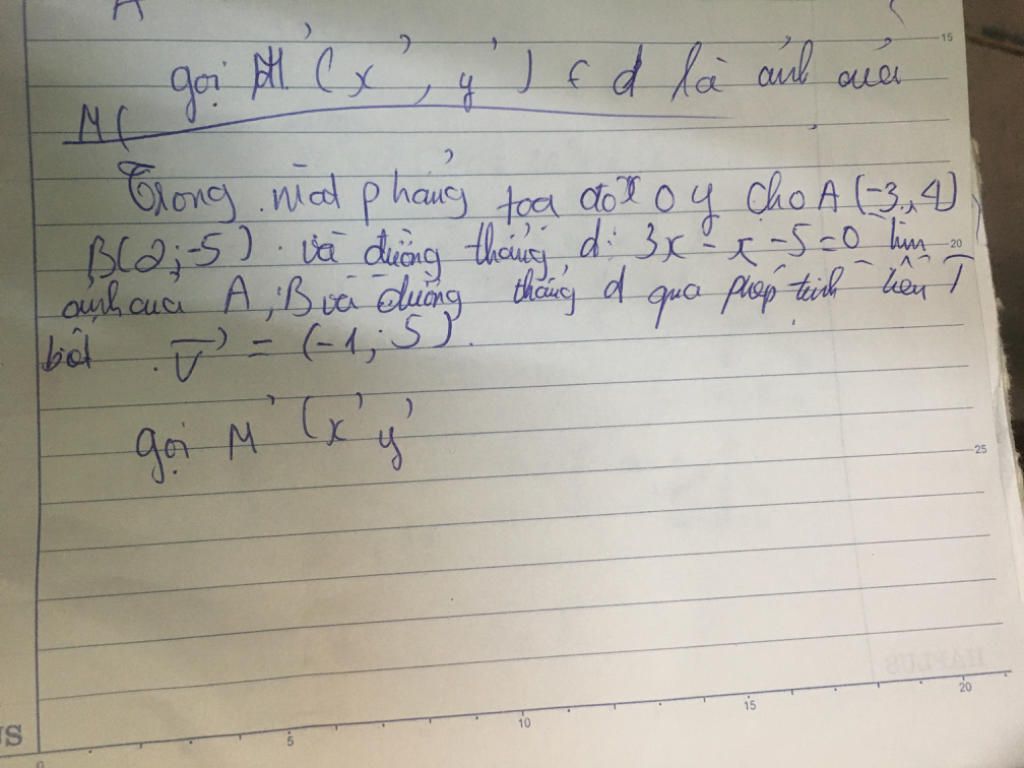 A
gọi M' (x', y') ∈ d là ảnh của
M(
Trong mặt phẳng tọa độ x O y cho A (-3, 4)
B(2; -5) và đường thẳng d: 3x - x - 5 = 0 tìm
ảnh của A, B và đường thẳng d qua phép tịnh tiến T
biết v = (-1; 5).
gọi M' (x' y'
15
20
25
US
0 5 10 15 20
HAPLUS